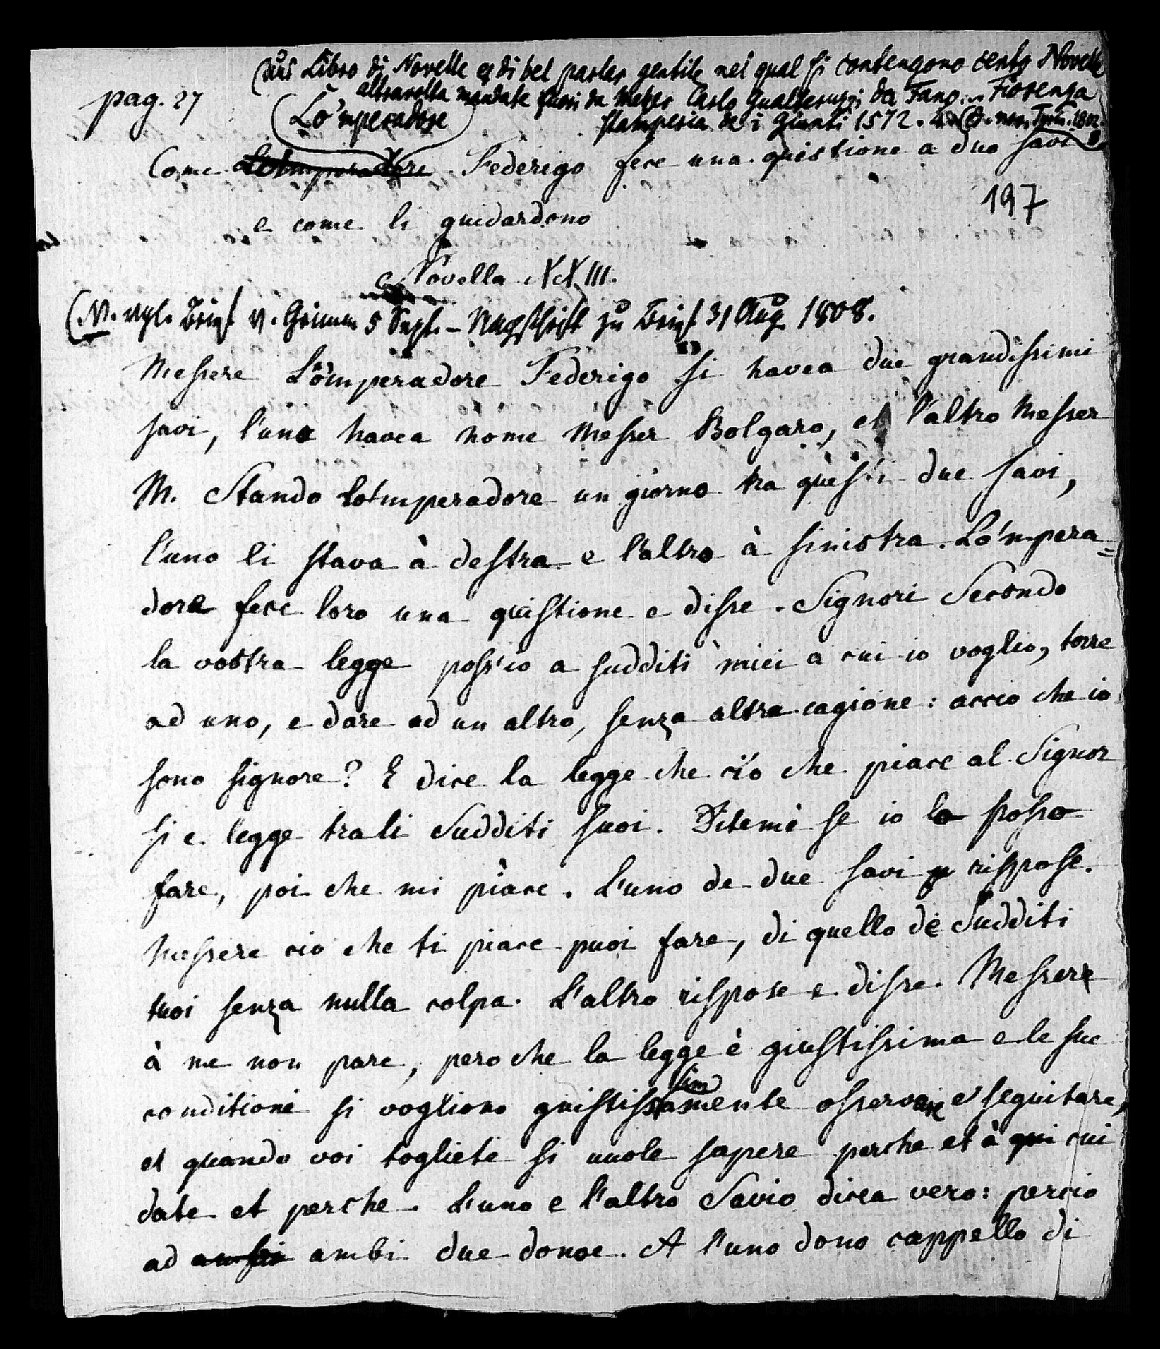 aus Libro di Novelle et di bel parlar gentile nel qual si contengono cento Novelle
altravolta mandate fuori da Messer Carlo Gualteruzzi da Fano. Fiorenza
pag. 27
Lo'mperadore
stamperia de i Giunti 1572.
Come Lo'mperadore Federigo fece una quistione a duo savi
197
e come li guidardono
Novella XXIII.
(N. vgl. Brief v. Grimm 5 Sept. - Nachschrift zu Brief 31 Aug 1808.
Messere Lo'mperadore Federigo si havea due grandissimi
savi, l'uno havea nome Messer Bolgaro, et l'altro Messer
M. Stando lo'mperadore un giorno tra questi due savi,
l'uno li stava à destra e l'altro à sinistra. Lo'mpera=
dore fece loro una quistione e disse. Signori Secondo
la vostra legge poss'io a sudditi miei a cui io voglio, torre
ad uno, e dare ad un altro, senza altra cagione: accio che io
sono signore? E dice la legge che ciò che piace al Signor
si e legge tra li Sudditi suoi. Ditemi se io lo posso
fare, poi che mi piace. L'uno de due savi rispose.
Messere ciò che ti piace puoi fare, di quello de Sudditi
tuoi senza nulla colpa. L'altro rispose e disse. Messere
à me non pare, pero che la legge è giustissima e le sue
conditioni si vogliono giustissimamente osservare e seguitare,
et quando voi togliete si vuole sapere perche et à cui
date et perche. L'uno e l'altro Savio dicea vero: percio
ad ambi due donoe. A l'uno dono cappello di